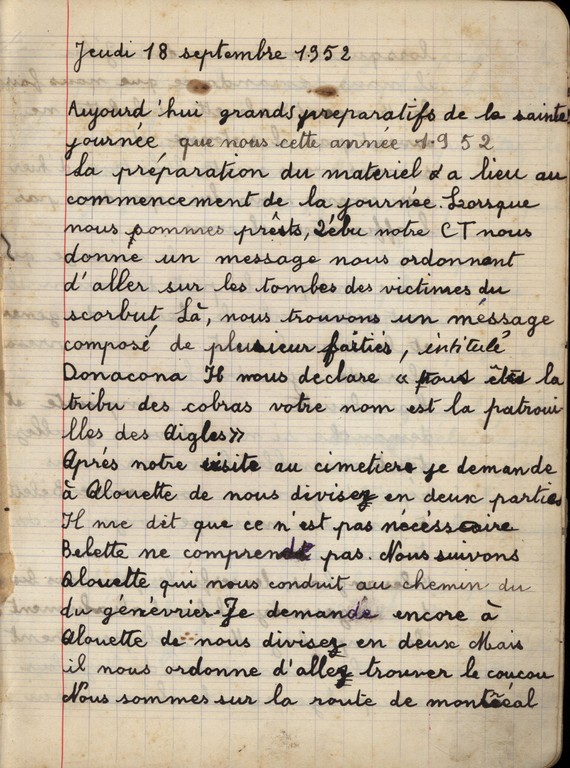 Jeudi 18 septembre 1952
Aujourd'hui grands preparatifs de la sainte
journée que nous cette année 1952
La préparation du materiel a lieu au
commencement de la journée. Lorsque
nous sommes prêts, Zébu notre CT nous
donne un message nous ordonnent
d'aller sur les tombes des victimes du
scorbut. Là, nous trouvons un méssage
composé de plusieur parties, intitulé
Donacona Il nous declare « vous êtes la
tribu des cobras votre nom est la patroui
lles des Aigles »
Aprés notre visite au cimetiere je demande
à Alouette de nous divisez en deux parties
Il me dit que ce n'est pas nécéssaire
Belette ne comprend pas. Nous suivons
Alouette qui nous conduit au chemin du
du génévrier. Je demande encore à
Alouette de nous divisez en deux Mais
il nous ordonne d'allez trouver le coucou
Nous sommes sur la route de montréal